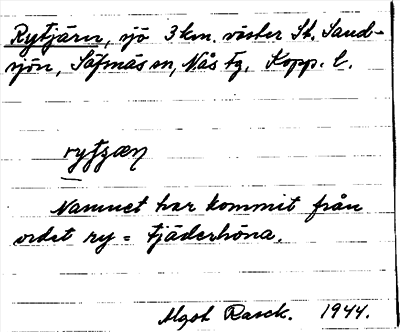 Rytjärn, sjö 3 km. väster St. Sand-
sjön, Säfsnäs sn, Nås tg, Kopp. l.
Namnet har kommit från
ordet ry = tjäderhöna.
Algot Rasck. 1944.